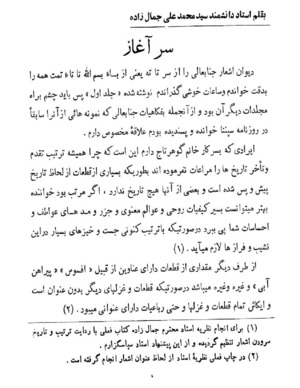 بقلم استاد دانشمند سید محمد علی جمال زاده
سر آغاز
دیوان اشعار جنابعالی را از سر تا ته یعنی از بساء بسم الله تا تاء تمت همه را
بدقت خواندم و ساعات خوشی گذراندم نوشته شده « جلد اول » پس باید چشم براه
مجلدات دیگر آن بود و از آنجمله بفکاهیات جنابعالی که نمونه هائی از آنرا سابقاً
در روزنامه سپنتا خوانده و پسندیده بودم علاقهٔ مخصوص دارم .
ایرادی که بسر کار خانم گوهرتاج دارم این است که چرا همیشه ترتیب تقدم
وتأخر تاریخ ها را مراعات نفرموده اند بطوریکه بسیاری ازقطعات ازلحاظ تاریخ
پیش و پس شده است و بعضی از آنها هیچ تاریخ ندارد ، اگر مرتب بود خواننده
بهتر میتوانست بسیر کیفیات روحی و عوالم معنوی و جزر و مد هـای عواطف و
احساسات شما پی ببرد درصورتیکه باترتیب کنونی جست و خیزهای بسیار دراین
نشیب و فراز ها لازم میآید . (۱)
از طرف دیگر مقداری از قطعات دارای عناوین از قبیل « افسوس » و «پیراهن
آبی» و غیره و غیره میباشد درصورتیکه قطعات و غزلهای دیگر بدون عنوان است
و ایکاش تمام قطعات و غزلها و حتی رباعیات دارای عنوانی میبود . (۲)
(۱) برای انجام نظریهٔ استاد محترم جمال زاده کتاب فعلی با رعایت ترتیب و تاریخ
سرودن اشعار تنظیم گردیده و از این پیشنهاد استاد سپاسگزارم .
(۲) در چاپ فعلی نظریهٔ استاد از لحاظ عنوان اشعار انجام گرفته است .